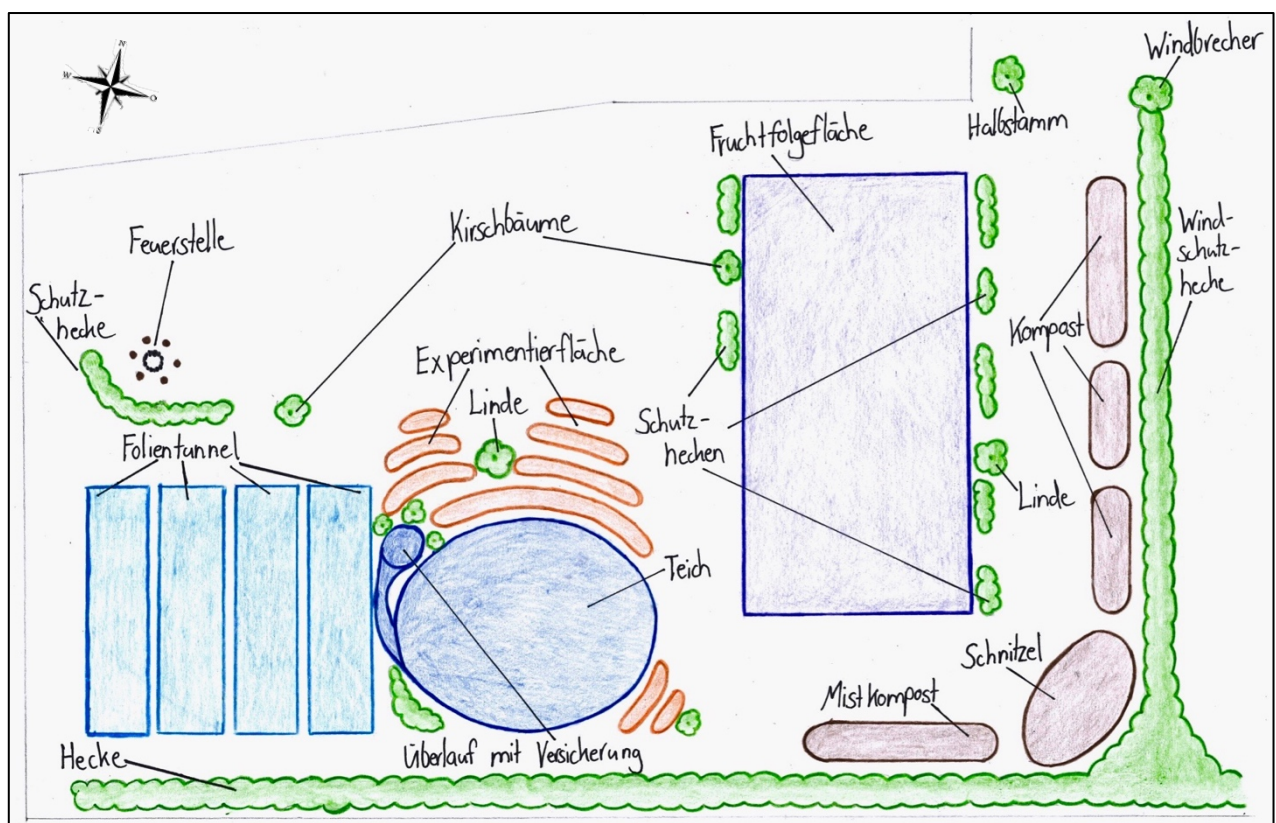 N
W
O
S
Windbrecher
Halbstamm
Fruchtfolgefläche
Kirschbäume
Feuerstelle
Wind-
schutz-
hecke
Schutz-
hecke
Kompost
Experimentierfläche
Linde
Schutz-
hecken
Folientunnel
Linde
Teich
Schnitzel
Mistkompost
Überlauf mit Versicherung
Hecke